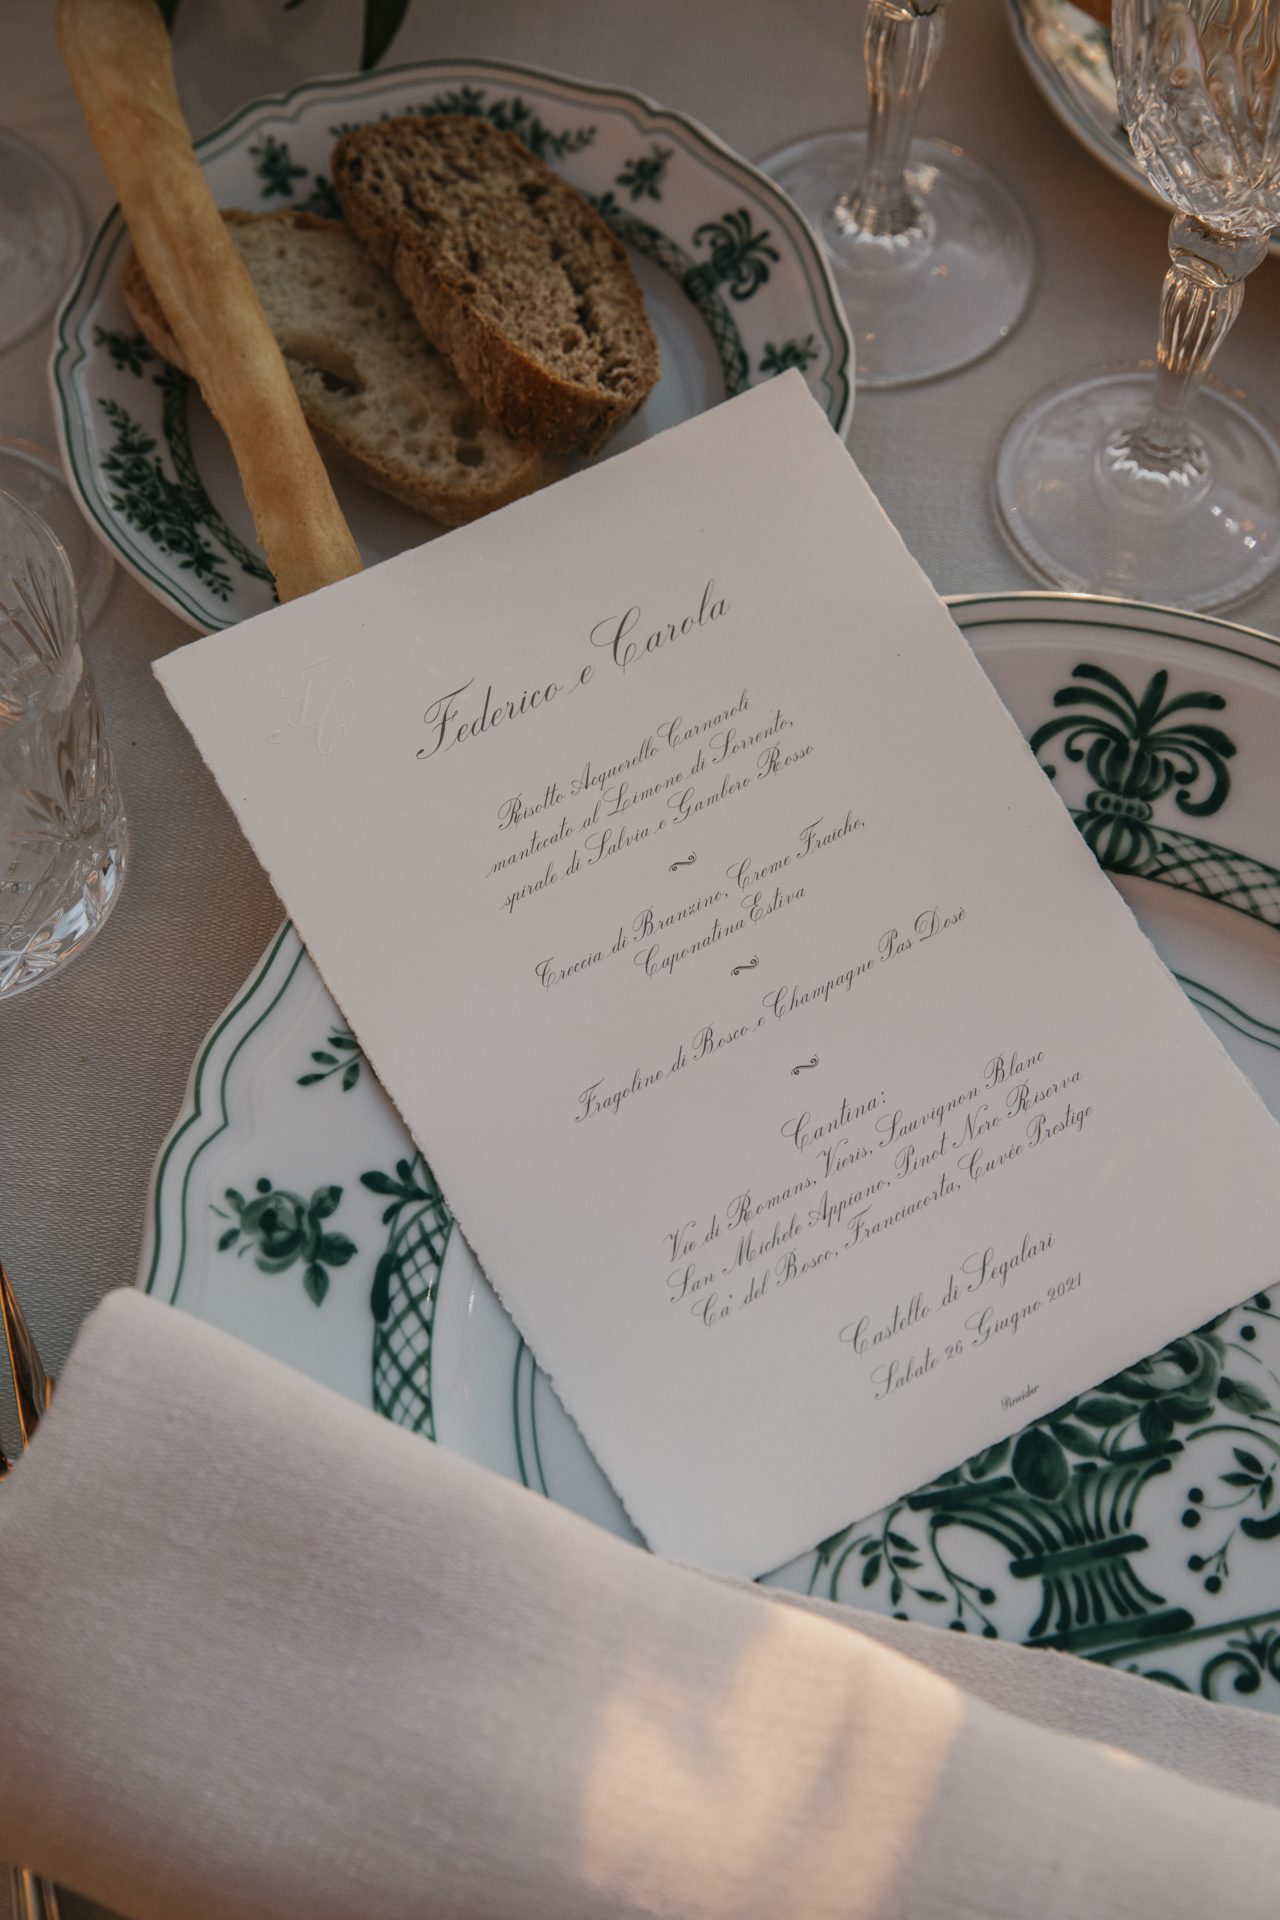 FC
Federico e Carola
Risotto Acquerello Carnaroli
mantecato al Limone di Sorrento,
spirale di Salvia e Gambero Rosso
Treccia di Branzino, Creme Fraiche,
Caponatina Estiva
Fragoline di Bosco e Champagne Pas Dosè
Cantina:
Vie di Romans, Vieris, Sauvignon Blanc
San Michele Appiano, Pinot Nero Riserva
Ca' del Bosco, Franciacorta, Cuvée Prestige
Castello di Segalari
Sabato 26 Giugno 2021
Pineider